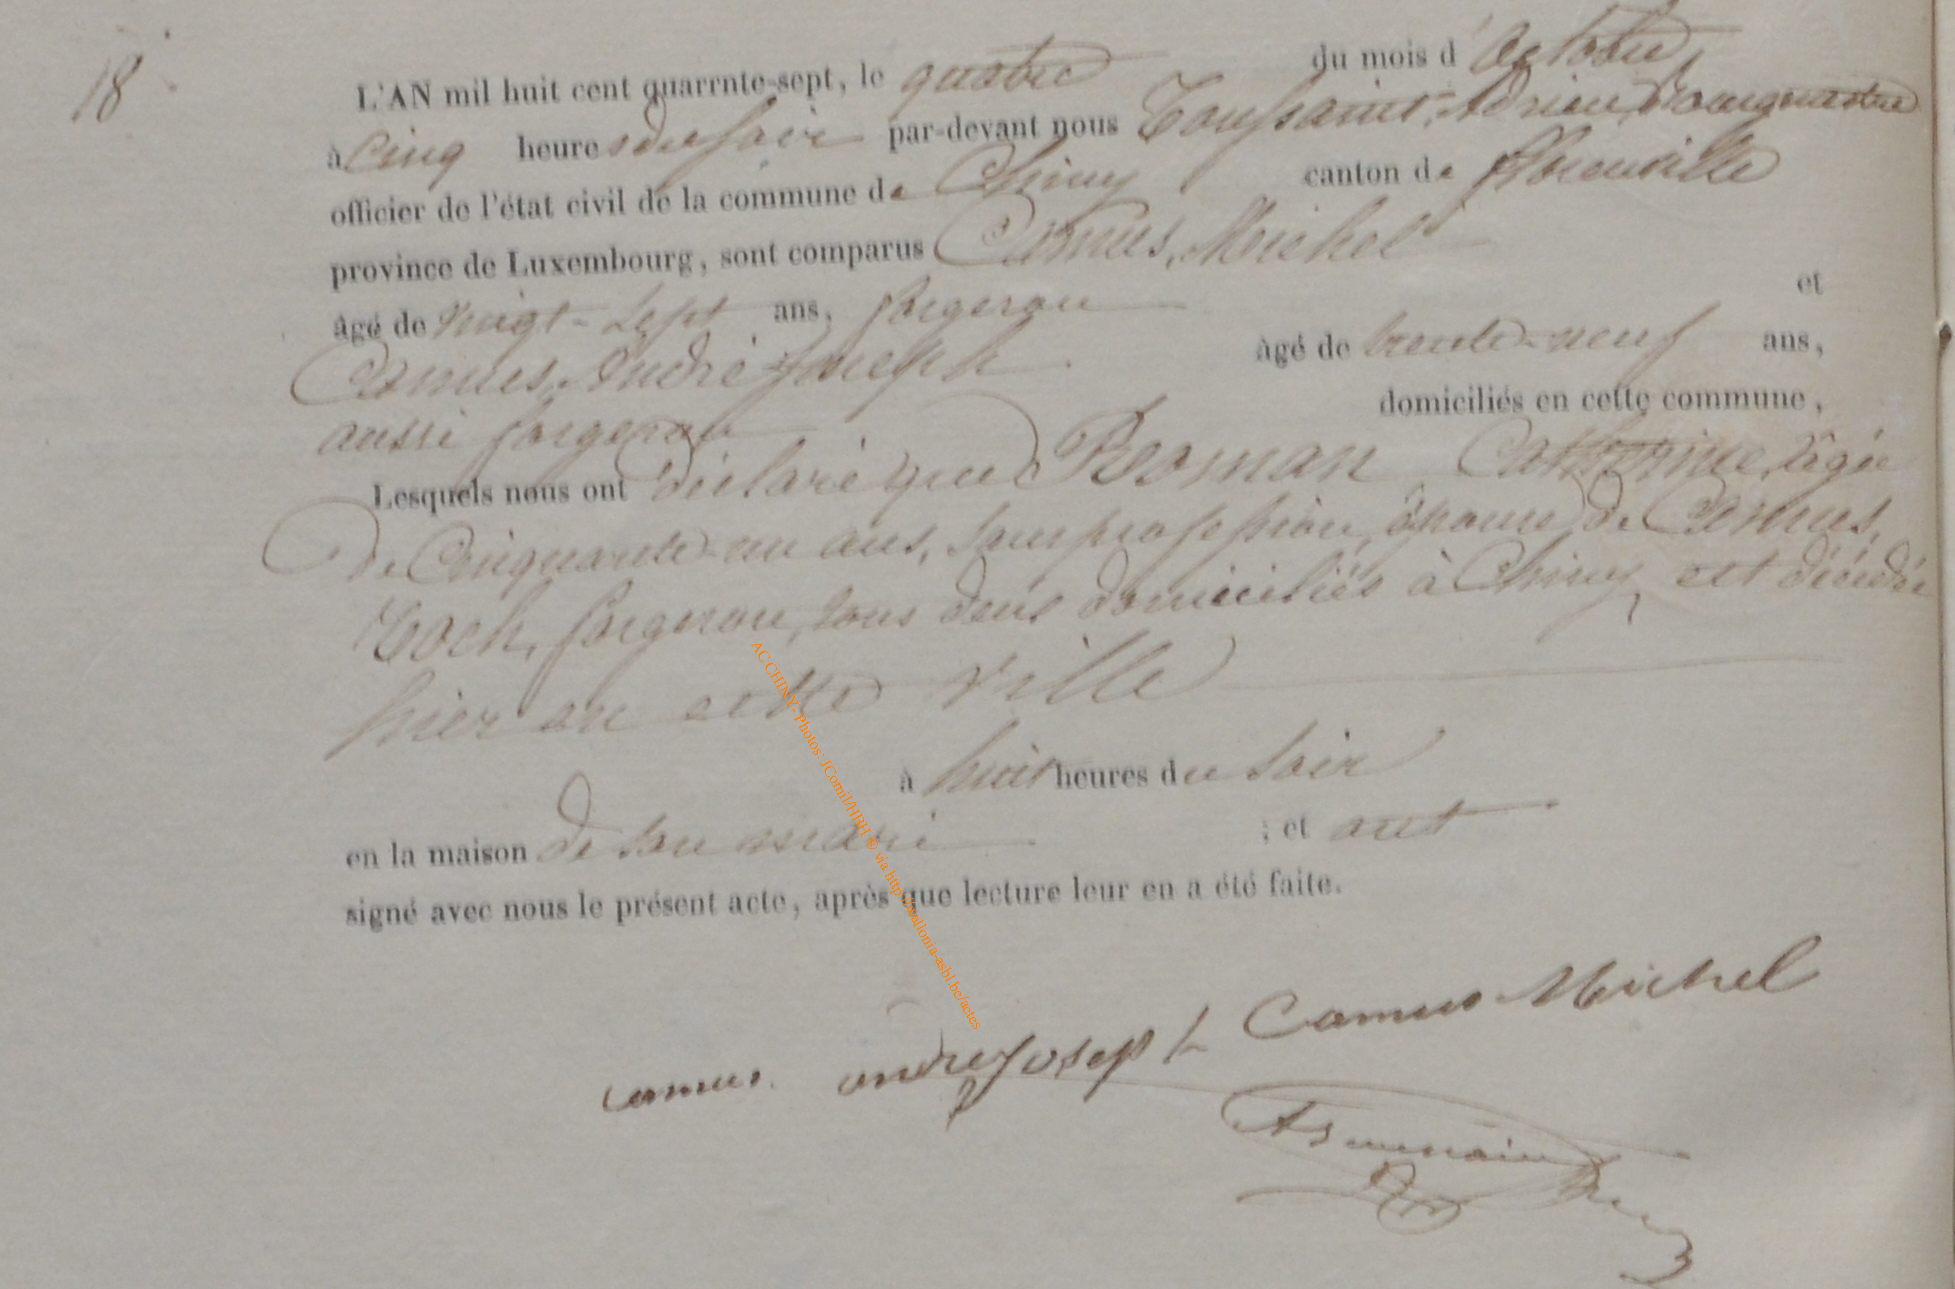 18
L'AN mil huit cent quarrnte-sept, le quatre du mois d'Octobre
à Cinq heures du soir par-devant nous Toussaint, Adrien, bourgmestre
officier de l'état civil de la commune de Chiny canton de florenville
province de Luxembourg, sont comparus Camus, Michel
âgé de vingt-sept ans, forgeron et
Camus, André Joseph âgé de trente-neuf ans,
aussi forgeron domiciliés en cette commune,
Lesquels nous ont déclaré que Roman Catherine, âgée
de Cinquante-un ans, sans profession, épouse de Camus,
forgeron, tous deux domiciliés à Chiny, est décédée
hier en cette ville
à huit heures du soir
en la maison de son mari ; et ont
signé avec nous le présent acte, après que lecture leur en a été faite.
camus andre joseph Camus Michel
ACCHINY- Photos JComil/HRH © via http://wallonia-asbl.be/actes